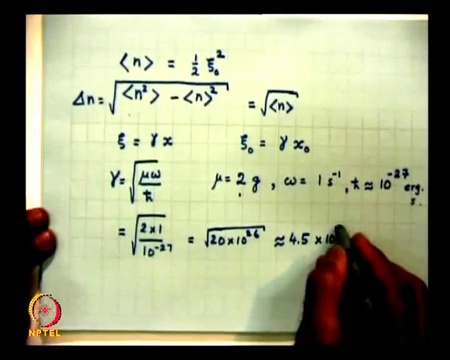 ⟨n⟩ = ½ ξ₀²
Δn = √(⟨n²⟩ − ⟨n⟩²) = √⟨n⟩
ξ = γ x ξ₀ = γ x₀
γ = √(μω/ħ) μ = 2 g , ω = 1 s⁻¹, ħ ≈ 10⁻²⁷ erg. s.
= √(2×1/10⁻²⁷) = √(20×10²⁶) ≈ 4.5 × 10
NPTEL